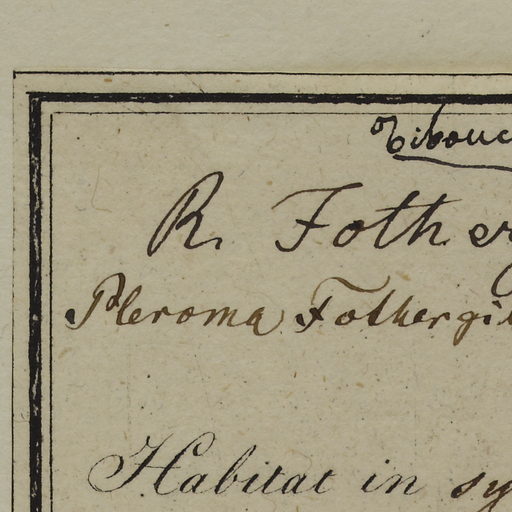 Tibouc
R. Father
Pleroma Fothergil
Habitat in sy